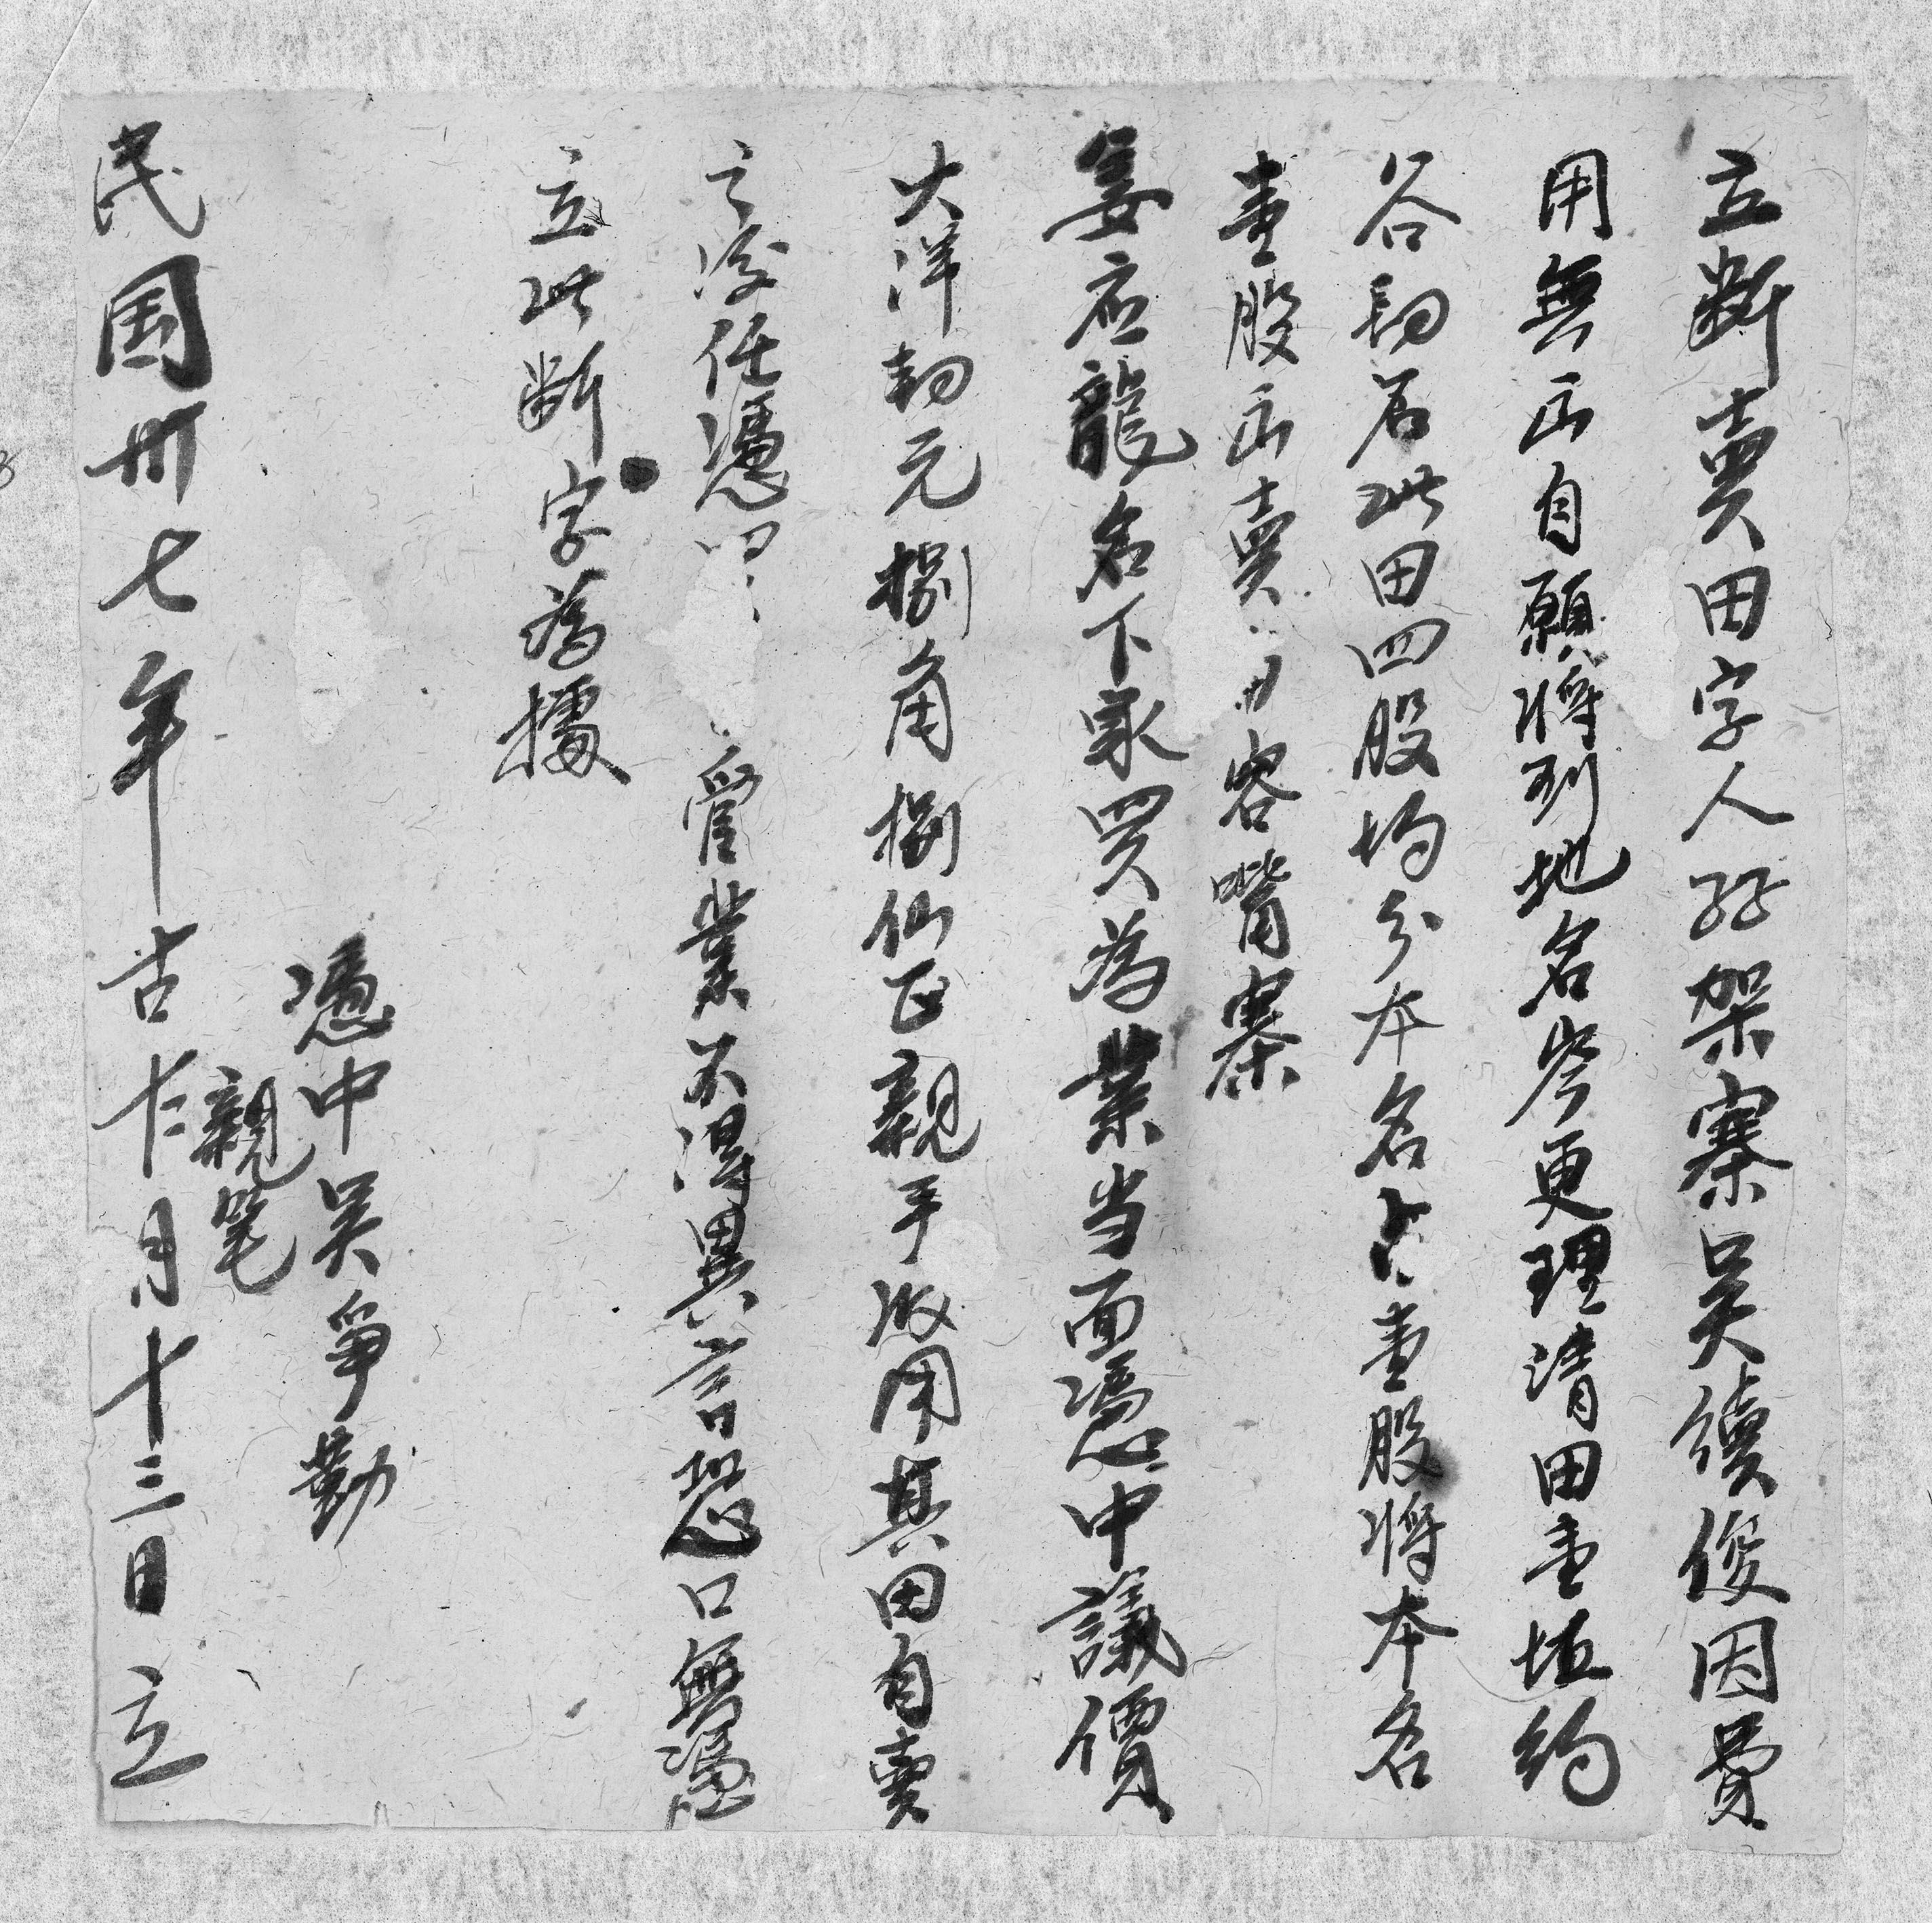 立断賣田字人孖架寨吴續俊因費
用無出自願將到地名岑更理清田壹坵約
谷韧石此田四股均分本名占壹股將本名
壹股出賣 容嘴寨
姜应龍名下承買為業当面憑中議價
大洋韧元捌角捌仙正親手收用其田自賣
之後任憑 管業不得異言恐口無憑
立此断字為據
憑中吴爭勤
親笔
民国卅七年古十二月十三日立